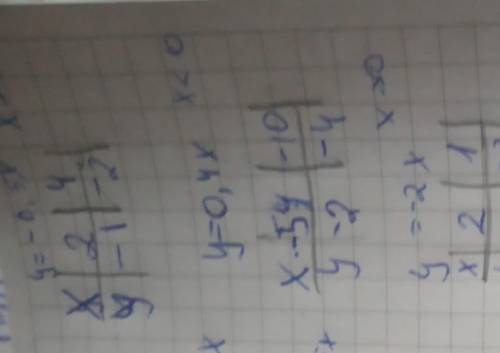 y = -0,5x
x 2 4
y -1 -2
y=0,4x x<0
x -5 -10
y -2 -4
y = -2x x≤0
x 2 1